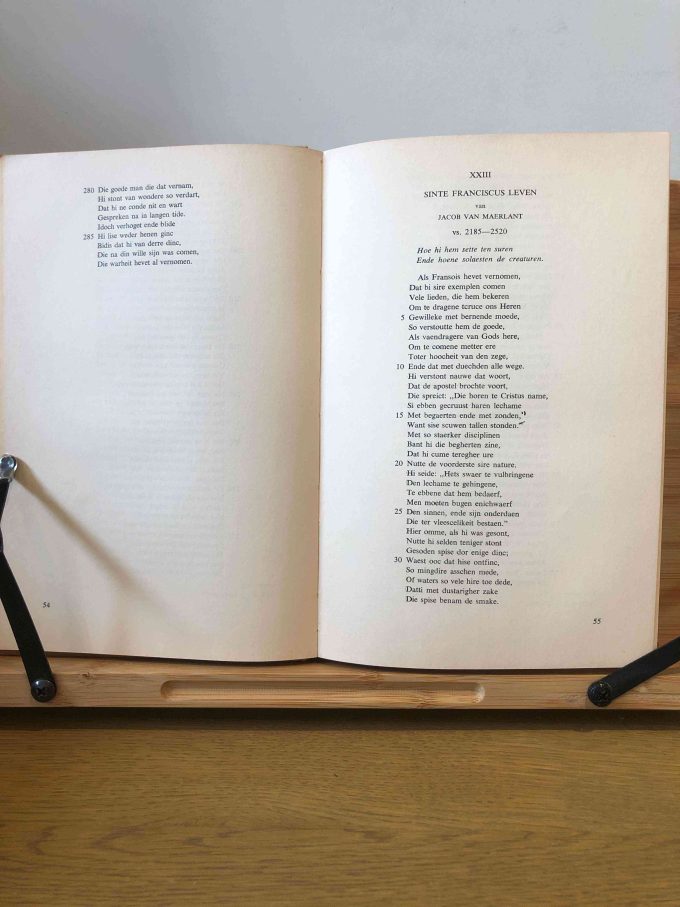 280 Die goede man die dat vernam,
Hi stont van wondere so verdart,
Dat hi ne conde nit en wart
Gespreken na in langen tide.
Idoch verhoget ende blide
285 Hi lise weder henen ginc
Bidis dat hi van derre dinc,
Die na din wille sijn was comen,
Die warheit hevet al vernomen.
54
XXIII
SINTE FRANCISCUS LEVEN
van
JACOB VAN MAERLANT
vs. 2185—2520
Hoe hi hem sette ten suren
Ende hoene solaesten de creaturen.
Als Fransois hevet vernomen,
Dat bi sire exemplen comen
Vele lieden, die hem bekeren
Om te dragene tcruce ons Heren
5 Gewilleke met bernende moede,
So verstoutte hem de goede,
Als vaendragere van Gods here,
Om te comene metter ere
Toter hoocheit van den zege,
10 Ende dat met duechden alle wege.
Hi verstont nauwe dat woort,
Dat de apostel brochte voort,
Die spreict: „Die horen te Cristus name,
Si ebben gecruust haren lechame
15 Met begaerten ende met zonden,"
Want sise scuwen tallen stonden.
Met so staerker disciplinen
Bant hi die begherten zine,
Dat hi cume teregher ure
20 Nutte de voorderste sire nature.
Hi seide: „Hets swaer te vulbringene
Den lechame te gehingene,
Te ebbene dat hem bedaerf,
Men moeten bugen enichwaerf
25 Den sinnen, ende sijn onderdaen
Die ter vleescelikeit bestaen."
Hier omme, als hi was gesont,
Nutte hi selden teniger stont
Gesoden spise dor enige dinc;
30 Waest ooc dat hise ontfinc,
So mingdire asschen mede,
Of waters so vele hire toe dede,
Datti met dustarigher zake
Die spise benam de smake.
55